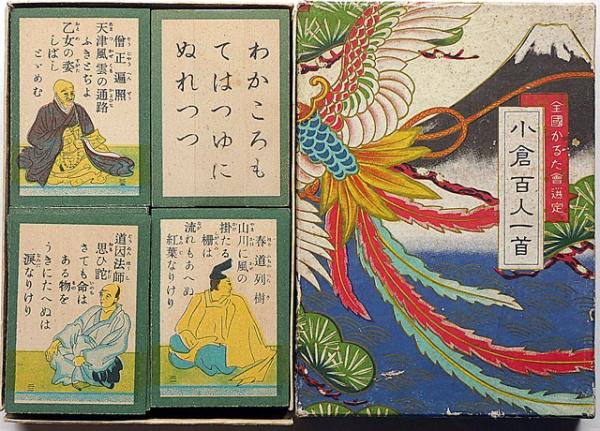 僧正遍照
天津風雲の通路
ふきとぢよ
乙女の姿
しばし
とゞめむ
わかころも
てはつゆに
ぬれつつ
道因法師
思ひ詫
さても命は
ある物を
うきにたへぬは
涙なりけり
春道列樹
山川に風の
掛たる
柵は
流れもあへぬ
紅葉なりけり
全國かるた會選定
小倉百人一首